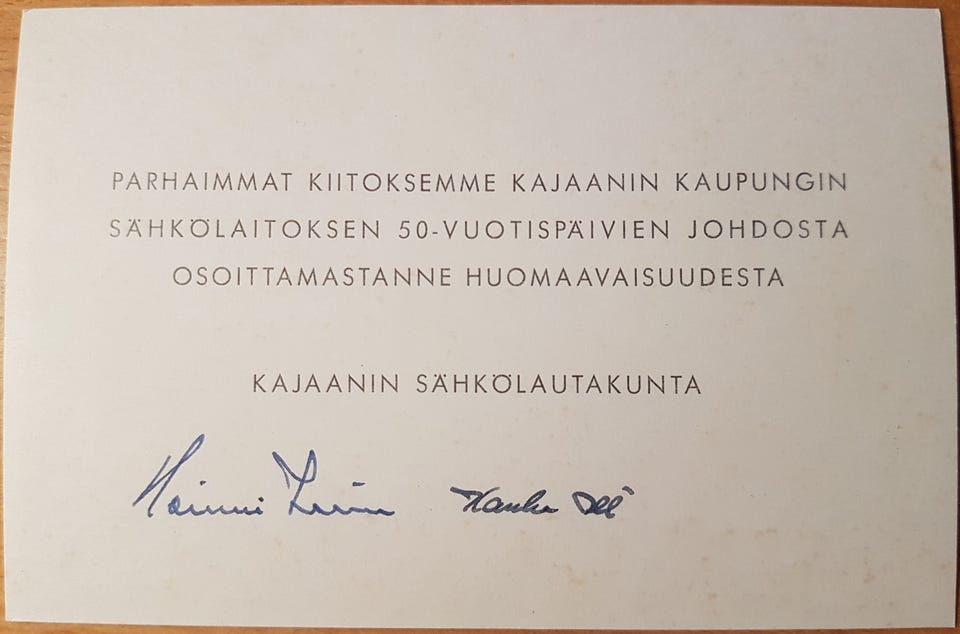 PARHAIMMAT KIITOKSEMME KAJAANIN KAUPUNGIN
SÄHKÖLAITOKSEN 50-VUOTISPÄIVIEN JOHDOSTA
OSOITTAMASTANNE HUOMAAVAISUUDESTA
KAJAANIN SÄHKÖLAUTAKUNTA